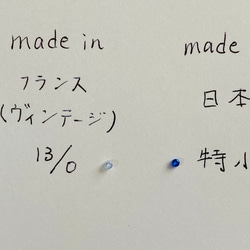 made in
フランス
(ヴィンテージ)
13/0
made
日本
特小